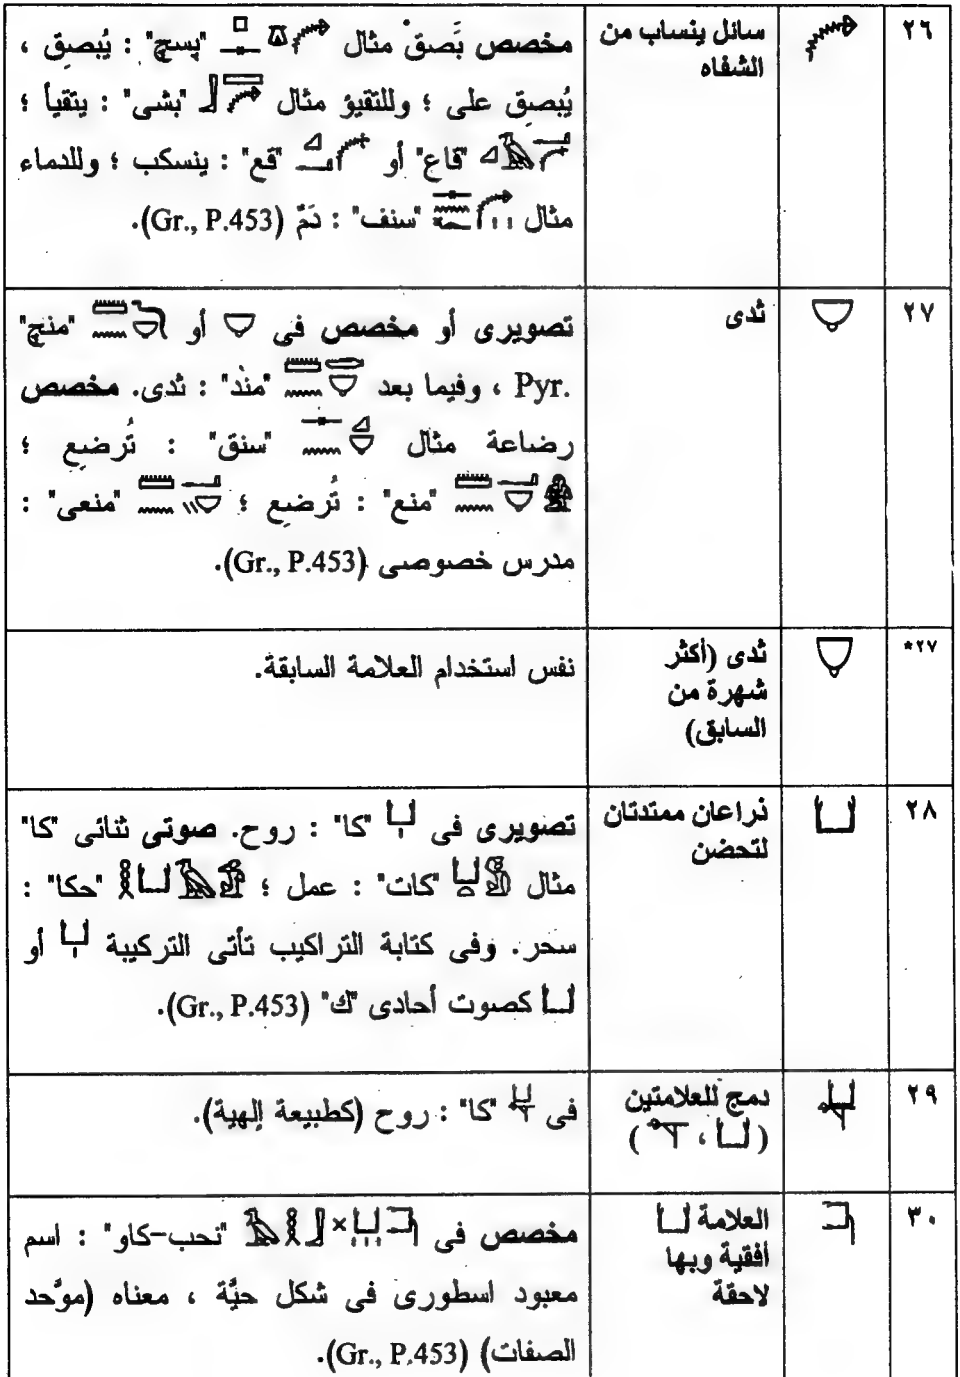 ٢٦ سائل ينساب من الشفاه
مخصص بَصقْ مثال "پسچ" : يُبصق ،
يُبصق على ؛ وللتقيؤ مثال "بشى" : يتقيأ ؛
"قاع" أو "قع" : ينسكب ؛ وللدماء
مثال "سنف" : دَمّ (Gr., P.453).
٢٧ ثدى
تصويرى أو مخصص فى أو "منچ"
Pyr. ، وفيما بعد "مند" : ثدى. مخصص
رضاعة مثال "سنق" : تُرضع ؛
"منع" : تُرضع ؛ "منعى" :
مدرس خصوصى (Gr., P.453).
*٢٧ ثدى (أكثر
شهرة من
السابق)
نفس استخدام العلامة السابقة.
٢٨ ذراعان ممتدتان
لتحضن
تصويرى فى "كا" : روح. صوتى ثنائى "كا"
مثال "كات" : عمل ؛ "حكا" :
سحر. وفى كتابة التراكيب تأتى التركيبة أو
كصوت أحادى "ك" (Gr., P.453).
٢٩ دمج للعلامتين
( ، )
فى "كا" : روح (كطبيعة إلهية).
٣٠ العلامة
أفقية وبها
لاحقة
مخصص فى "نحب-كاو" : اسم
معبود اسطورى فى شكل حيَّة ، معناه (موَّحد
الصفات) (Gr., P.453).